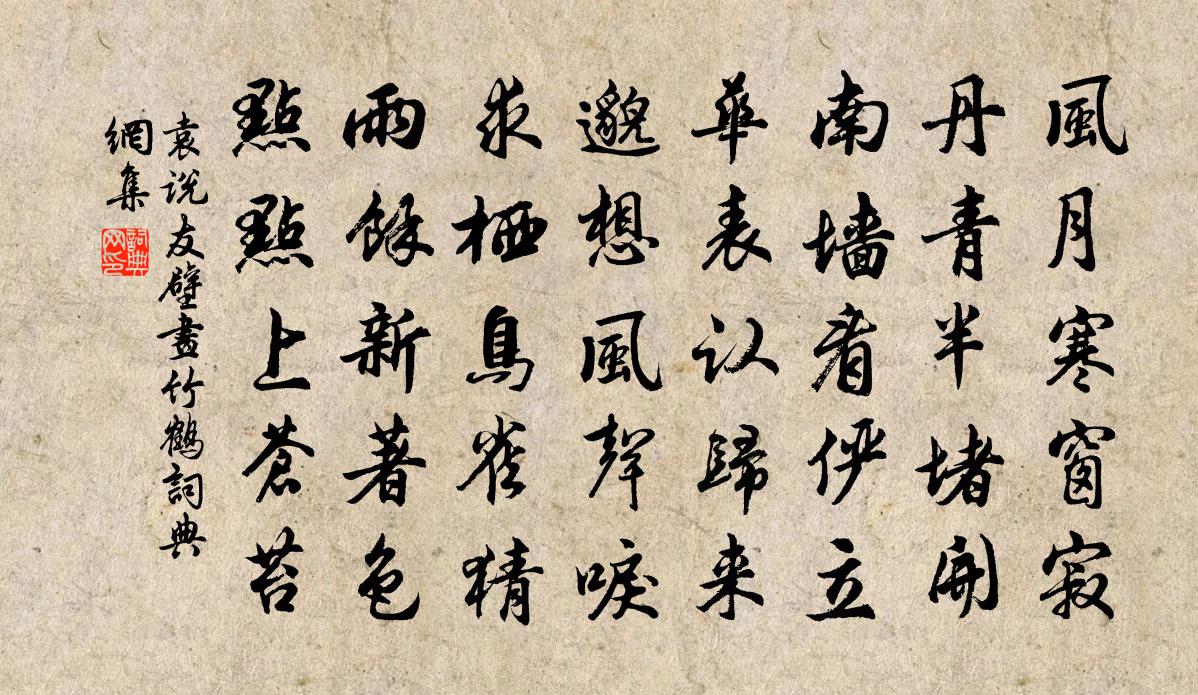 風月寒窗寂
丹青半堵開
南墻看俨立
華表认歸来
邈想風聲唳
求栖鳥雀猜
雨餘新著色
點點上蒼苔
袁说友壁畫竹鶴詞典
網集
詞典网印